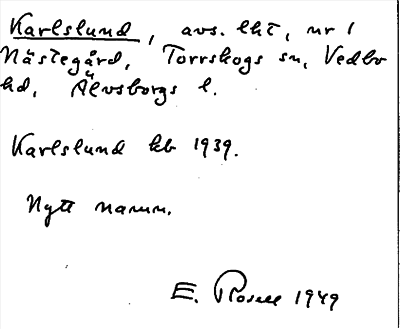 Karlslund, avs. lht, nr 1
Nästegård, Torrskogs sn, Vedbo
hd, Älvsborgs l.
Karlslund kb 1939.
Nytt namn.
E. Rosell 1949